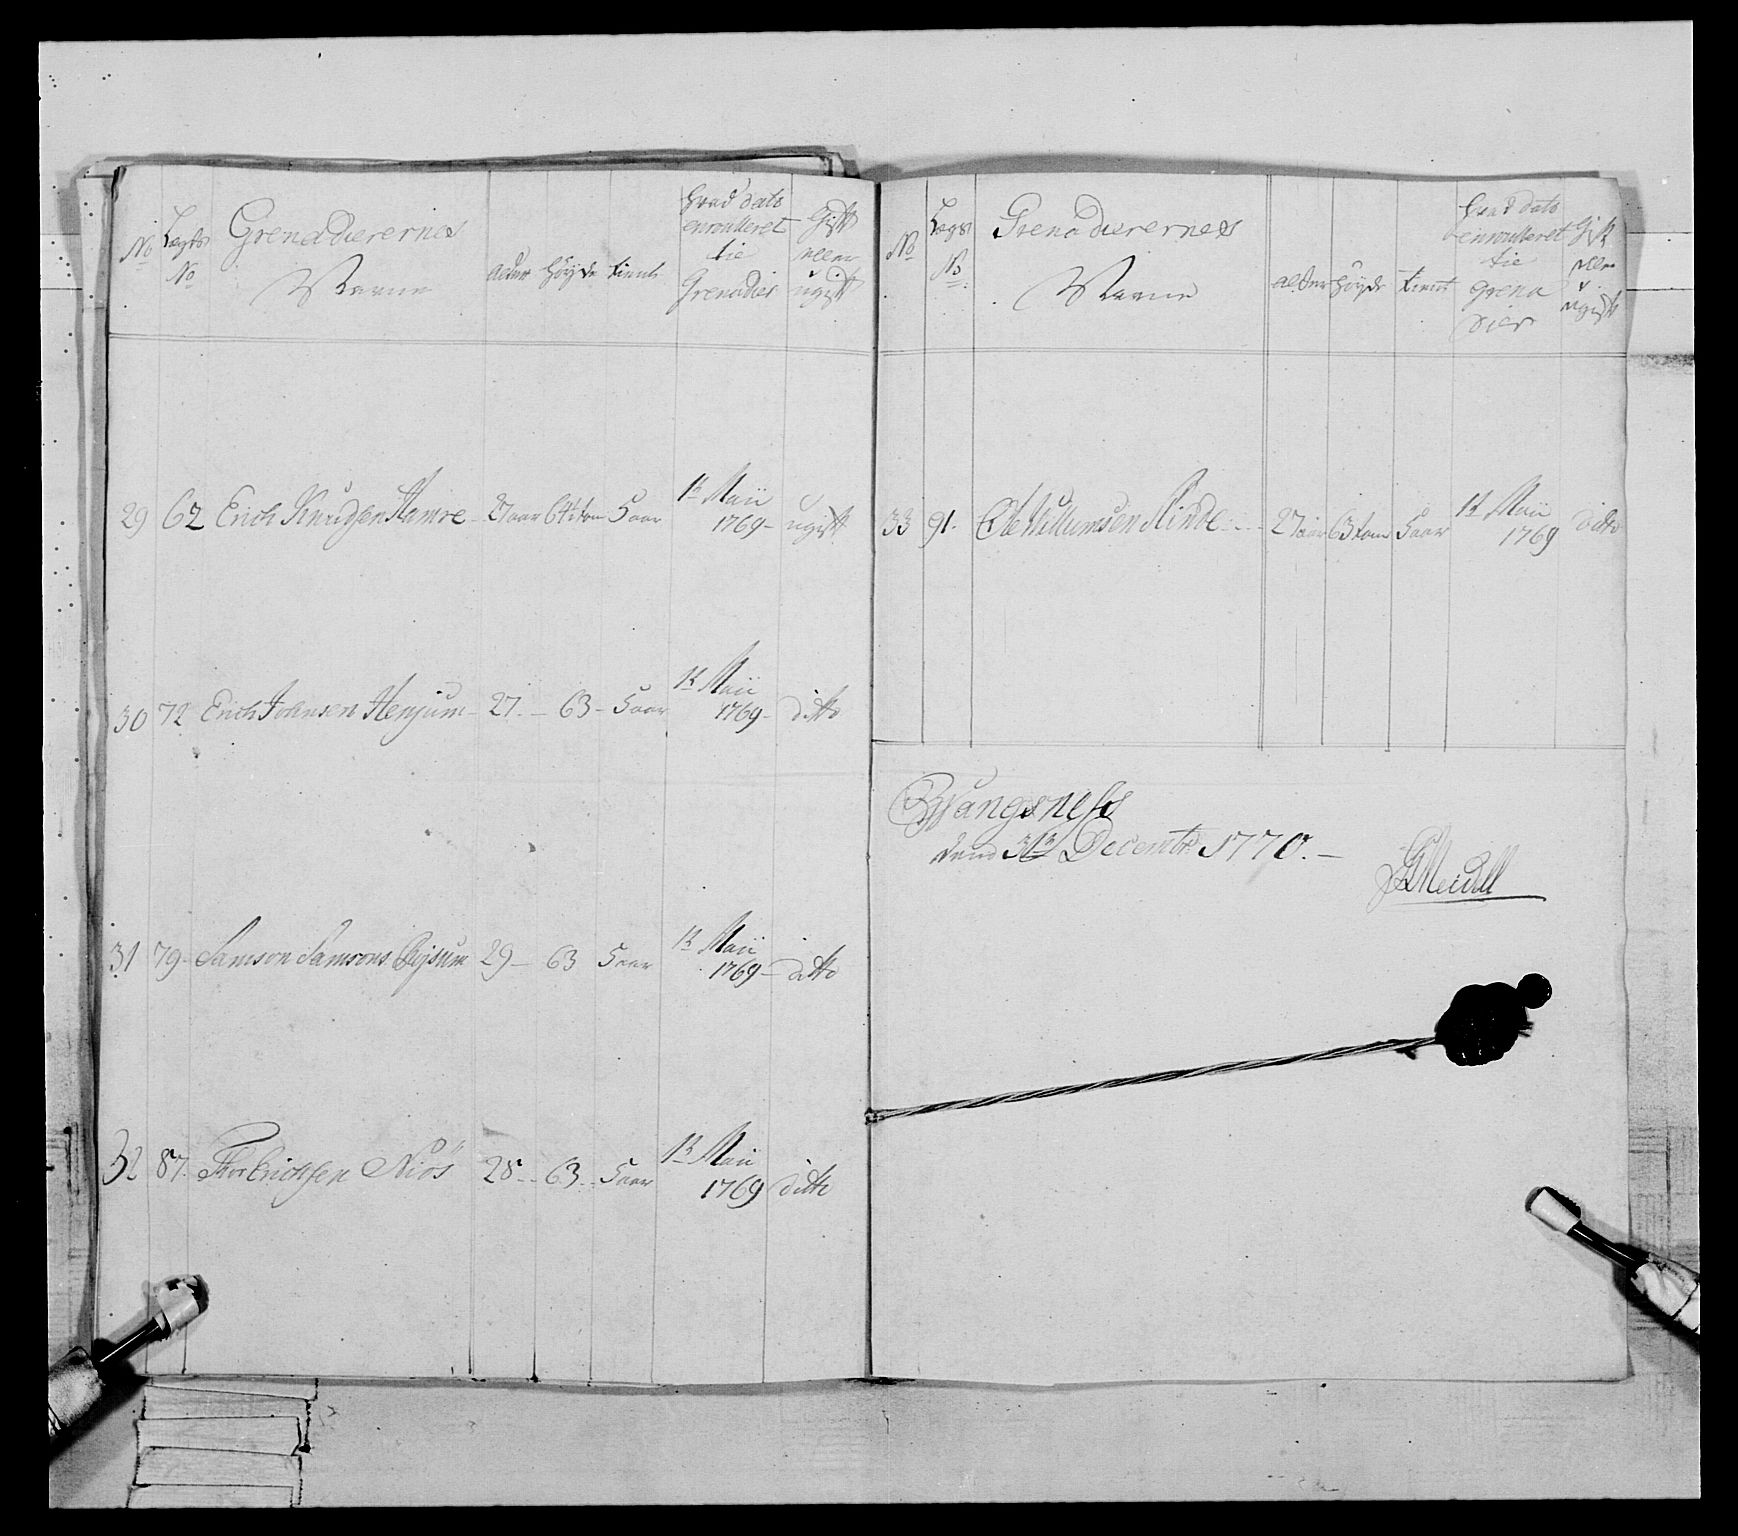 No
Lægds
No
Grenadierernes
Navne
alder
höyde
tient
hvad dato
enroulleret
til
Grenadier
Gift
eller
ugift
29 62 Erich Knudsen Hamre 27 aar 64 tom 5 aar 1te Maii
1769 ugift
30 72 Erich Johnsen Henjum 27 63 5 aar 1te Maii
1769 ditto
31 79 Samson Samsons 29 63 5 aar 1te Maii
1769 ditto
32 87 Thor Erichsen Niös 28 63 5 aar 1te Maii
1769 ditto
No
Lægs
No
Grenadierernes
Navne
alder
höyde
tient
hvad dato
enroulleret
til
Grena
dier
Gift
eller
ugift
33 91 Ole Willumsen Hinde 27 aar 63 tom 5 aar 1te Maii
1769 ditto
Wangsness
dend 31te Decembr 1770.
Meidell